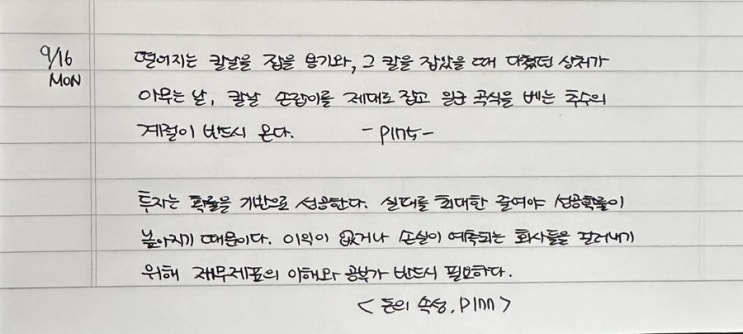 9/16
MON
떨어지는 칼날을 잡을 용기와, 그 칼을 잡았을 때 다쳤던 상처가
아무는 날, 칼날 손잡이를 제대로 잡고 익은 곡식을 베는 추수의
계절이 반드시 온다. -P175-
투자는 확률을 기반으로 성공한다. 실패를 최대한 줄여야 성공확률이
높아지기 때문이다. 이익이 없거나 손실이 예측되는 회사들을 걸러내기
위해 재무제표의 이해와 공부가 반드시 필요하다.
< 돈의 속성, P177 >